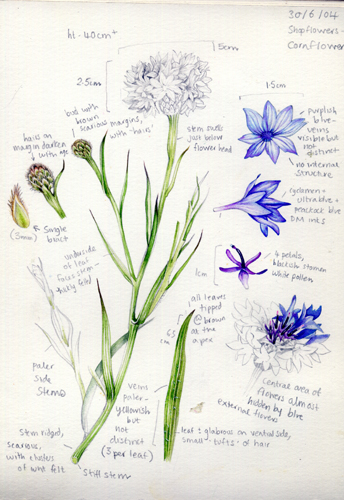 30/6/04
Shopflowers -
Cornflower
ht. 40cm+
5cm
2.5cm
bud with
brown
scarious margins,
with 'hairs'
stem swells
just below
flower head
hairs on
margin darken
with age
1.5cm
purplish
blue -
veins
visible but
not
distinct
no internal
structure
Single
bract
(3mm)
cyclamen +
ultra blue +
peacock blue
DM inks
underside
of leaf
faces stem -
fully felted
1cm
4 petals,
blackish stamen
white pollen
all leaves
tipped
brown
at the
apex
6.5
cm
paler
side
stem
central area of
flowers almost
hidden by blue
external flowers
veins
paler -
yellowish
but
not
distinct
(3 per leaf)
leaf: glabrous on ventral side,
small 'tufts' of hair
stem ridged,
scarious,
with
of white felt
stiff stem